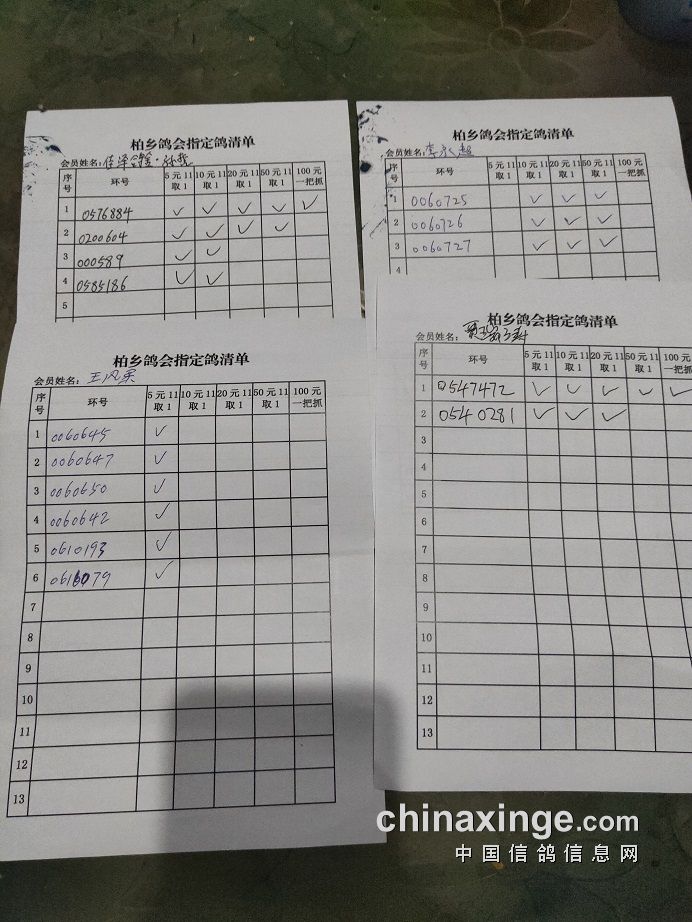 柏乡鸽会指定鸽清单
会员姓名：佳泽鑫鸽·孙苋
序号 环号 5元11取1 10元11取1 20元11取1 50元11取1 100元一把抓
1 0576884 ✓ ✓ ✓ ✓ ✓
2 0200604 ✓ ✓ ✓ ✓
3 000589 ✓ ✓
4 0585186 ✓ ✓
5
柏乡鸽会指定鸽清单
会员姓名：李永超
序号 环号 5元11取1 10元11取1 20元11取1 50元11取1 100元一把抓
1 0060725 ✓ ✓ ✓
2 0060726 ✓ ✓ ✓
3 0060727 ✓ ✓ ✓
4
柏乡鸽会指定鸽清单
会员姓名：王风果
序号 环号 5元11取1 10元11取1 20元11取1 50元11取1 100元一把抓
1 0060645 ✓
2 0060647 ✓
3 0060650 ✓
4 0060642 ✓
5 0610193 ✓
6 0616079 ✓
7
8
9
10
11
12
13
柏乡鸽会指定鸽清单
会员姓名：
序号 环号 5元11取1 10元11取1 20元11取1 50元11取1 100元一把抓
1 0547472 ✓ ✓ ✓ ✓ ✓
2 0540281 ✓ ✓ ✓
3
4
5
6
7
8
9
10
11
12
13
chinaxinge.com
中国信鸽信息网